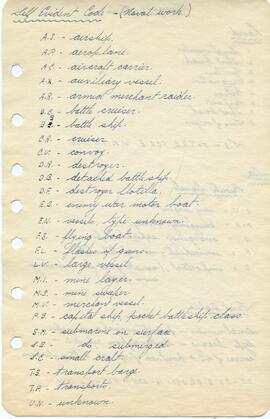 Self Evident Code - (Naval work)
A.S. - airship.
A.P. - aeroplane.
A.C. - aircraft carrier.
A.X. - auxiliary vessel.
A.R. - armed merchant raider.
B.C. - battle cruiser.
B.S. - battle ship.
C.R. - cruiser.
C.V. - convoy.
D.R. - destroyer.
D.B. - detailed battleship.
D.F. - destroyer flotilla.
E.B. - enemy war motor boat.
E.N. - vessels type unknown.
F.B. - flying boat.
F.L. - flashes of guns.
L.V. - large vessel.
M.L. - mine layer.
M.S. - mine sweeper.
M.V. - merchant vessel.
P.B. - capital ship, pocket battleship class.
S.M. - submarine on surface.
S.B. - do submerged.
S.C. - small craft.
T.B. - transport barge.
T.P. - transports.
U.N. - unknown.